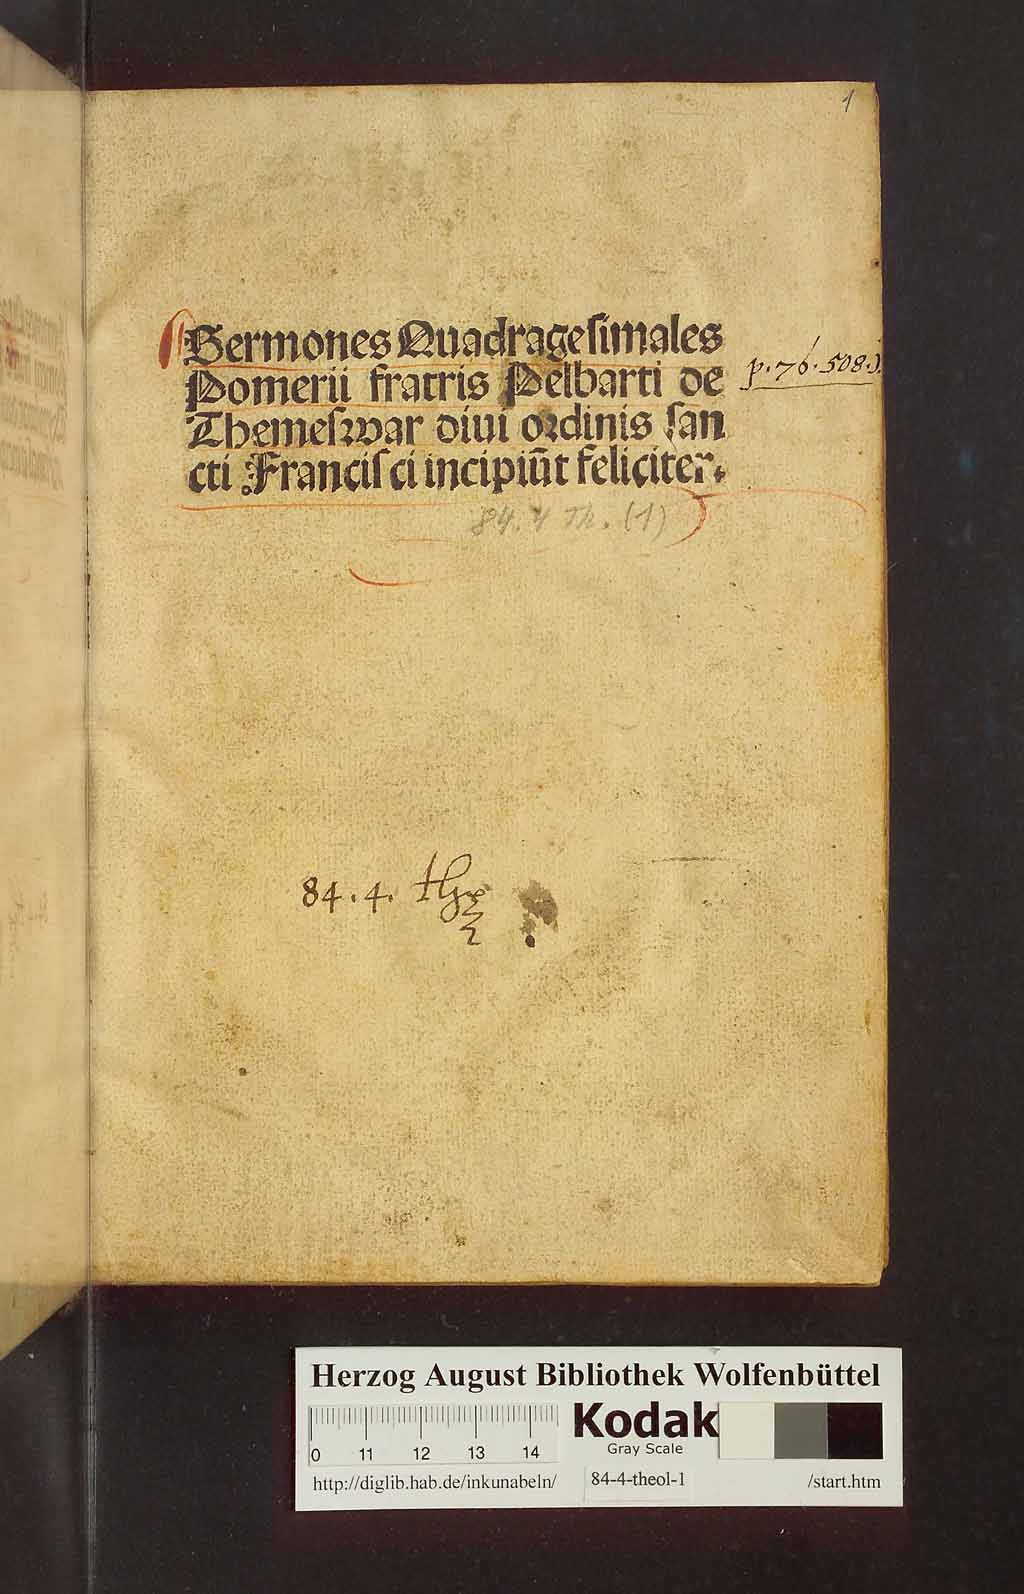 1
Sermones Quadragesimales
Pomerii fratris Pelbarti de
Themeswar diui ordinis san
cti Francisci incipiūt feliciter.
p. 76. 508.
84. 4 Th. (1)
84. 4. th
Herzog August Bibliothek Wolfenbüttel
0 11 12 13 14
Kodak
Gray Scale
http://diglib.hab.de/inkunabeln/ 84-4-theol-1 /start.htm